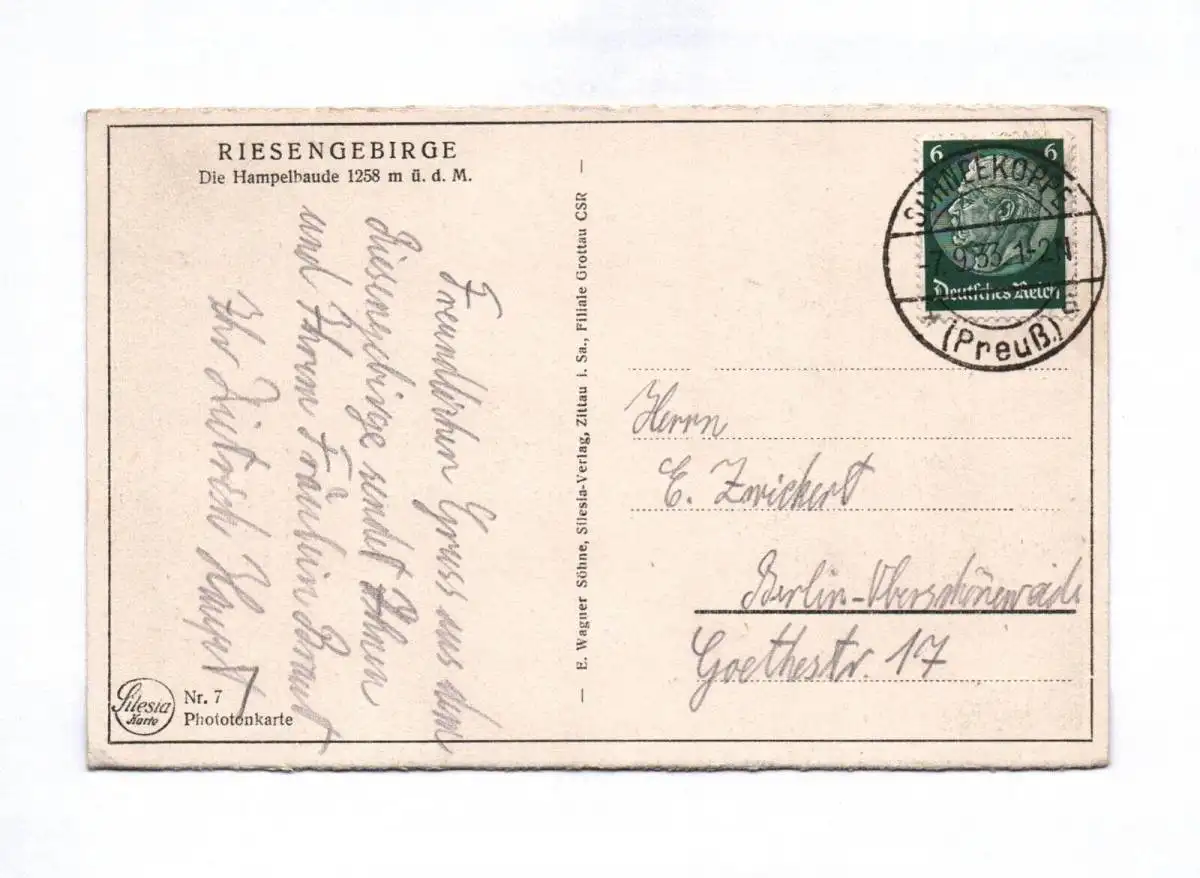 RIESENGEBIRGE
Die Hampelbaude 1258 m ü. d. M.
Freundlichen Gruss aus dem
Riesengebirge sendet Ihnen
und Ihrem Fräulein Braut
Ihr
Silesia
Karte
Nr. 7
Phototonkarte
— E. Wagner Söhne, Silesia-Verlag, Zittau i. Sa., Filiale Grottau CSR —
6 6
Deutsches Reich
SCHNEEKOPPE
-7.9.33 1-2N
(Preuß.)
Herrn
E. Zwickert
Berlin-Oberschöneweide
Goethestr. 17